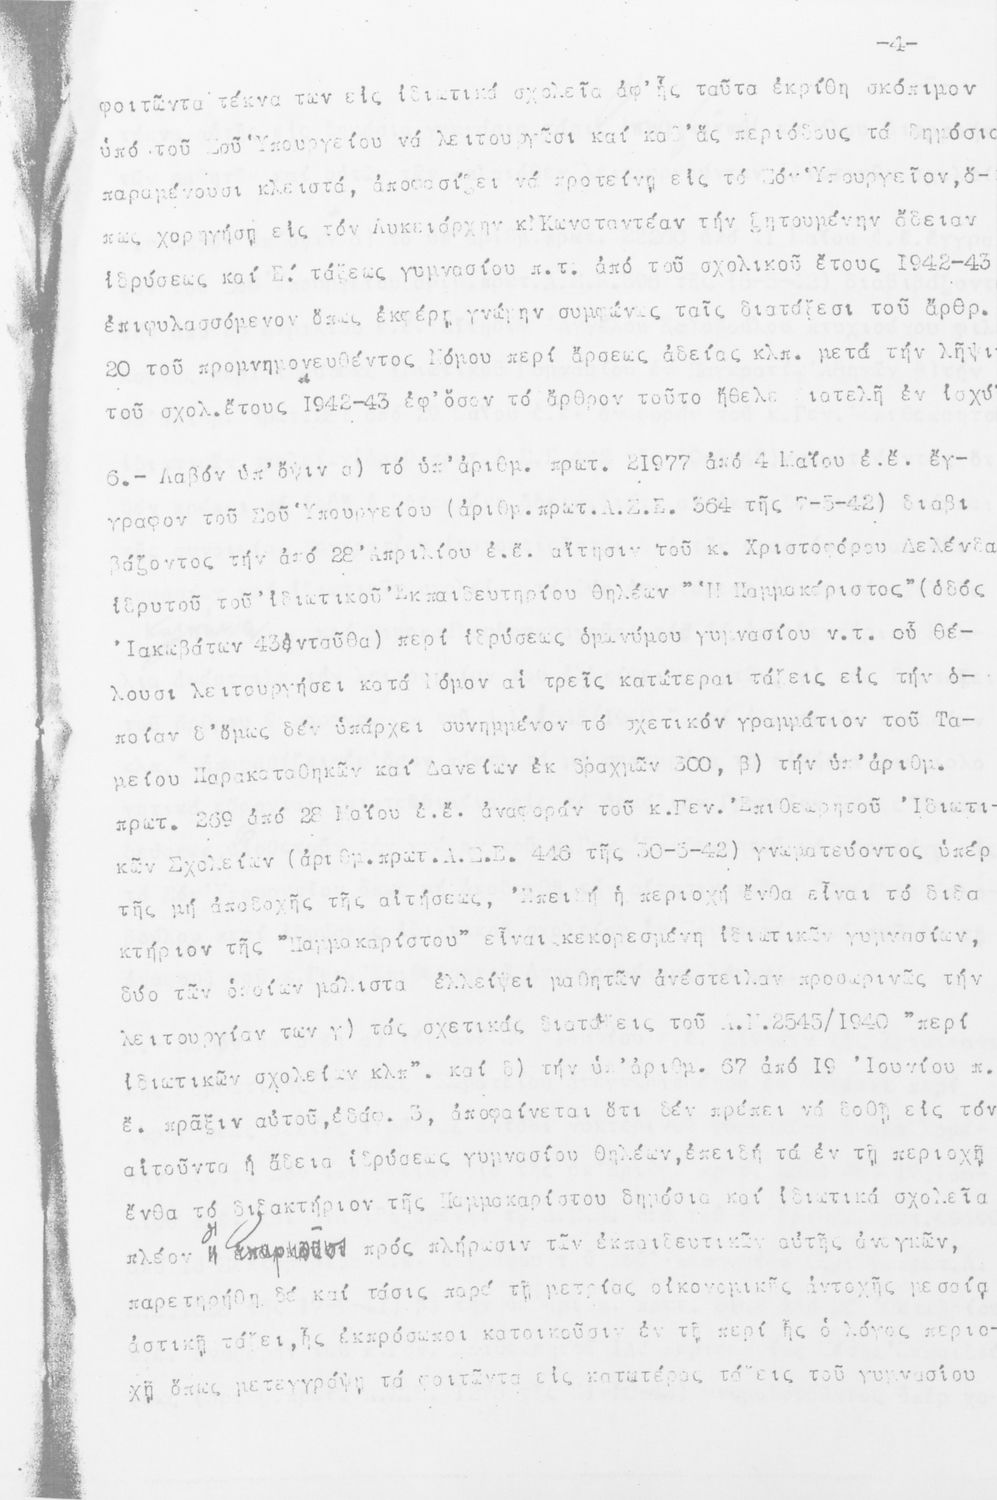 -4-
φοιτῶντα τέκνα των εἰς ἰδιωτικά σχολεῖα ἀφ'ἧς ταῦτα ἐκρίθη σκόπιμον
ὑπό τοῦ Σοῦ Ὑπουργείου νά λειτουργῶσι καί καθ'ἅς περιόδους τά δημόσια
παραμένουσι κλειστά, ἀποφασίζει νά προτείνῃ εἰς τό Σόν Ὑπουργεῖον,ὅ-
πως χορηγήσῃ εἰς τόν Λυκειάρχην κ.Κωνσταντέαν τήν ζητουμένην ἄδειαν
ἱδρύσεως καί Σ΄ τάξεως γυμνασίου π.τ. ἀπό τοῦ σχολικοῦ ἔτους 1942-43
ἐπιφυλασσόμενον ὅπως ἐκφέρῃ γνώμην συμφώνως ταῖς διατάξεσι τοῦ ἄρθρ.
20 τοῦ προμνημονευθέντος Νόμου περί ἄρσεως ἀδείας κλπ. μετά τήν λῆψιν
τοῦ σχολ.ἔτους 1942-43 ἐφ'ὅσον τό ἄρθρον τοῦτο ἤθελε διατελῆ ἐν ἰσχύ
6.- Λαβόν ὑπ'ὄψιν α) τό ὑπ'ἀριθμ. πρωτ. 21977 ἀπό 4 Μαΐου ἐ.ἔ. ἔγ-
γραφον τοῦ Σοῦ Ὑπουργείου (ἀριθμ.πρωτ.Α.Σ.Ε. 364 τῆς 7-5-42) διαβι
βάζοντος τήν ἀπό 28 Ἀπριλίου ἐ.ἔ. αἴτησιν τοῦ κ. Χριστοφόρου Δελένδα
ἱδρυτοῦ τοῦ Ἰδιωτικοῦ Ἐκπαιδευτηρίου Θηλέων "Ἡ Παμμακάριστος"(ὁδός
Ἰακωβάτων 43 ἐνταῦθα) περί ἱδρύσεως ὁμωνύμου γυμνασίου ν.τ. οὗ θέ-
λουσι λειτουργήσει κατά Νόμον αἱ τρεῖς κατώτεραι τάξεις εἰς τήν ὁ-
ποίαν δ'ὅμως δέν ὑπάρχει συνημμένον τό σχετικόν γραμμάτιον τοῦ Τα-
μείου Παρακαταθηκῶν καί Δανείων ἐκ δραχμῶν 300, β) τήν ὑπ'ἀριθμ.
πρωτ. 269 ἀπό 28 Μαΐου ἐ.ἔ. ἀναφοράν τοῦ κ.Γεν. Ἐπιθεωρητοῦ Ἰδιωτι-
κῶν Σχολείων (ἀριθμ.πρωτ.Α.Σ.Ε. 446 τῆς 30-5-42) γνωματεύοντος ὑπέρ
τῆς μή ἀποδοχῆς τῆς αἰτήσεως, Ἐπειδή ἡ περιοχή ἔνθα εἶναι τό διδα
κτήριον τῆς "Παμμακαρίστου" εἶναι κεκορεσμένη ἰδιωτικῶν γυμνασίων,
δύο τῶν ὁποίων μάλιστα ἐλλείψει μαθητῶν ἀνέστειλαν προσωρινῶς τήν
λειτουργίαν των γ) τάς σχετικάς διατάξεις τοῦ Α.Ν.2545/1940 "περί
ἰδιωτικῶν σχολείων κλπ". καί δ) τήν ὑπ'ἀριθμ. 67 ἀπό 19 Ἰουνίου π.
ἔ. πρᾶξιν αὐτοῦ,ἐδάφ. 3, ἀποφαίνεται ὅτι δέν πρέπει νά δοθῇ εἰς τόν
αἰτοῦντα ἡ ἄδεια ἱδρύσεως γυμνασίου Θηλέων,ἐπειδή τά ἐν τῇ περιοχῇ
ἔνθα τό διδακτήριον τῆς Παμμακαρίστου δημόσια καί ἰδιωτικά σχολεῖα
πλέον ἤ ἐπαρκοῦσι πρός πλήρωσιν τῶν ἐκπαιδευτικῶν αὐτῆς ἀναγκῶν,
παρετηρήθη δέ καί τάσις παρά τῇ μετρίας οἰκονομικῆς ἀντοχῆς μεσαίᾳ
ἀστικῇ τάξει,ἧς ἐκπρόσωποι κατοικοῦσιν ἐν τῇ περί ἧς ὁ λόγος περιο-
χῇ ὅπως μετεγγράψῃ τά φοιτῶντα εἰς κατωτέρας τάξεις τοῦ γυμνασίου